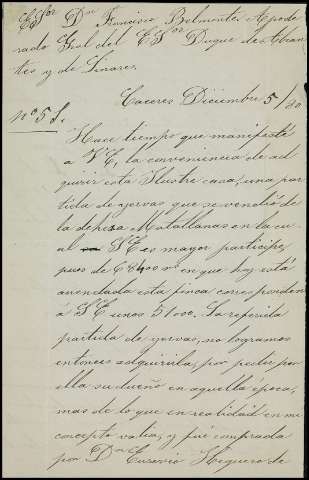 Sor Dn Francisco Belmonte Apode-
rado Gral del E Sor Duque de Abran-
tes y de Linares.
Caceres Diciembre 5/80
nº 5
Hace tiempo que manifesté
a V E, la conveniencia de ad-
quirir esta Ilustre casa, una par-
tida de yervas que se vendió de
la dehesa Matallanas en la cu-
al S E es mayor participe,
pues de 68400 rs en que hoy está
arrendada esta finca corresponden
á S E unos 51000. La referida
partida de yervas, no logramos
entonces adquirirla, por pedir por
ella su dueño en aquella época,
mas de lo que en realidad en mi
concepto valia, y fué comprada
por Dn Eusevio Higuero de